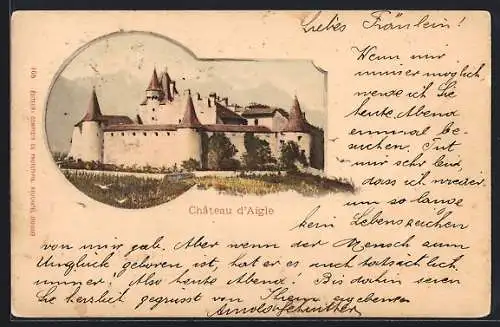 Liebes Fräulein!
Wenn mir
immer möglich
werde ich Sie
heute Abend
einmal be-
suchen. Tut
mir sehr leid,
dass ich wieder
um so lange
kein Lebenszeichen
von mir gab. Aber wenn der Mensch zum
Unglück geboren ist, hat er es auch tatsächlich
immer. Also heute Abend! Bis dahin seien
Sie herzlich gegrüsst von Ihrem ergebenen
Château d'Aigle
ÉDITEUR: COMPTOIR DE PHOTOTYPIE, NEUCHÂTEL